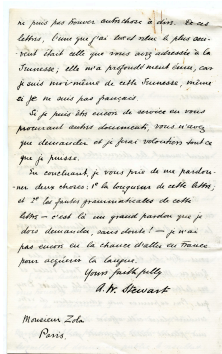 ne puis pas trouver autre chose à dire. De ces
lettres, l'une que j'ai lue et relue le plus sou-
vent était celle que vous avez adressée à la
Jeunesse; elle m'a profondément ému, car
je suis moi-même de cette Jeunesse, même
si je ne suis pas français.
Si je puis être encore de service en vous
procurant autres documents, vous n'avez
que demander et je ferai volontiers tout ce
que je puisse.
En concluant, je vous prie de me pardon-
ner deux choses: 1º la longueur de cette lettre;
et 2º les fautes grammaticales de cette
lettre — c'est là un grand pardon que je
dois demander, sans doute! — je n'ai
pas encore eu la chance d'aller en France
pour acquérir la langue.
Yours faithfully
A. W. Stewart
Monsieur Zola
Paris.